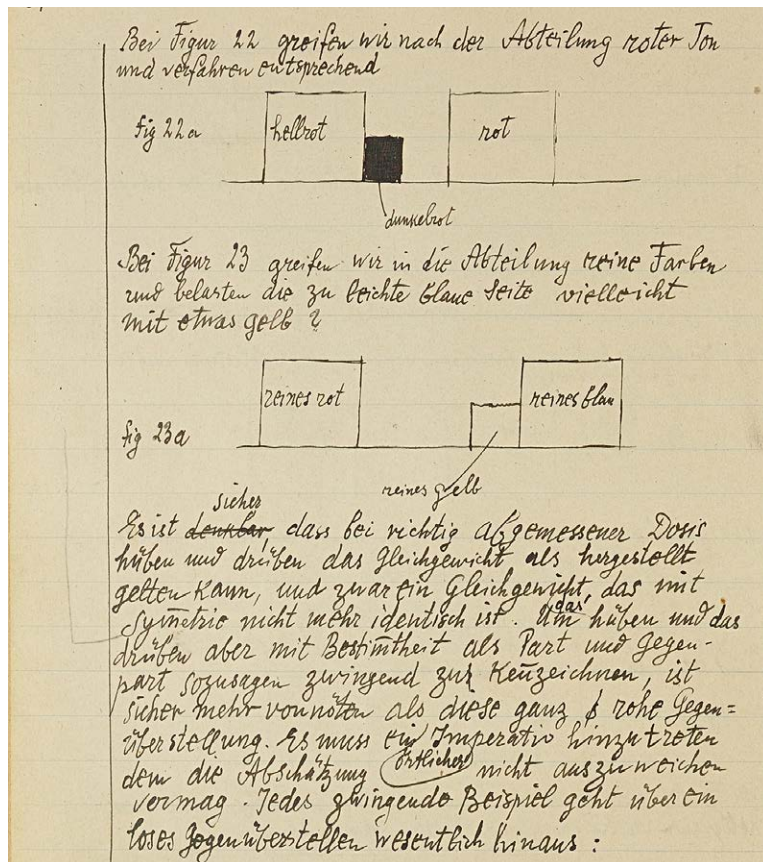 Bei Figur 22 greifen wir nach der Abteilung roter Ton
und verfahren entsprechend
fig 22a
hellrot
rot
dunkelrot
Bei Figur 23 greifen wir in die Abteilung reine Farben
und belasten die zu leichte blaue Seite vielleicht
mit etwas gelb ?
reines rot
reines blau
fig 23a
reines gelb
sicher
Es ist denkbar, dass bei richtig abgemessener Dosis
hüben und drüben das Gleichgewicht als hergestellt
gelten kann, und zwar ein Gleichgewicht, das mit
Sym̅etrie nicht mehr identisch ist. Um das hüben und das
drüben aber mit Bestim̅theit als Part und Gegen-
part sozusagen zwingend zu Keñzeichnen, ist
sicher mehr vonnöten als diese ganz rohe Gegen=
überstellung. Es muss ein Imperativ hinzutreten
dem die Abschätzung örtlicher nicht auszuweichen
vermag. Jedes zwingende Beispiel geht über ein
loses Gegenüberstellen wesentlich hinaus :